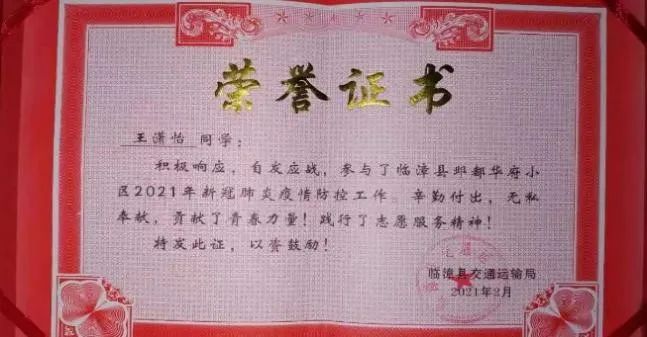 荣誉证书
王潇怡 同学：
积极响应，自发应战，参与了临漳县邺都华府小
区2021年新冠肺炎疫情防控工作。辛勤付出，无私
奉献，贡献了青春力量！践行了志愿服务精神！
特发此证，以资鼓励！
临漳县交通运输局
2021年2月